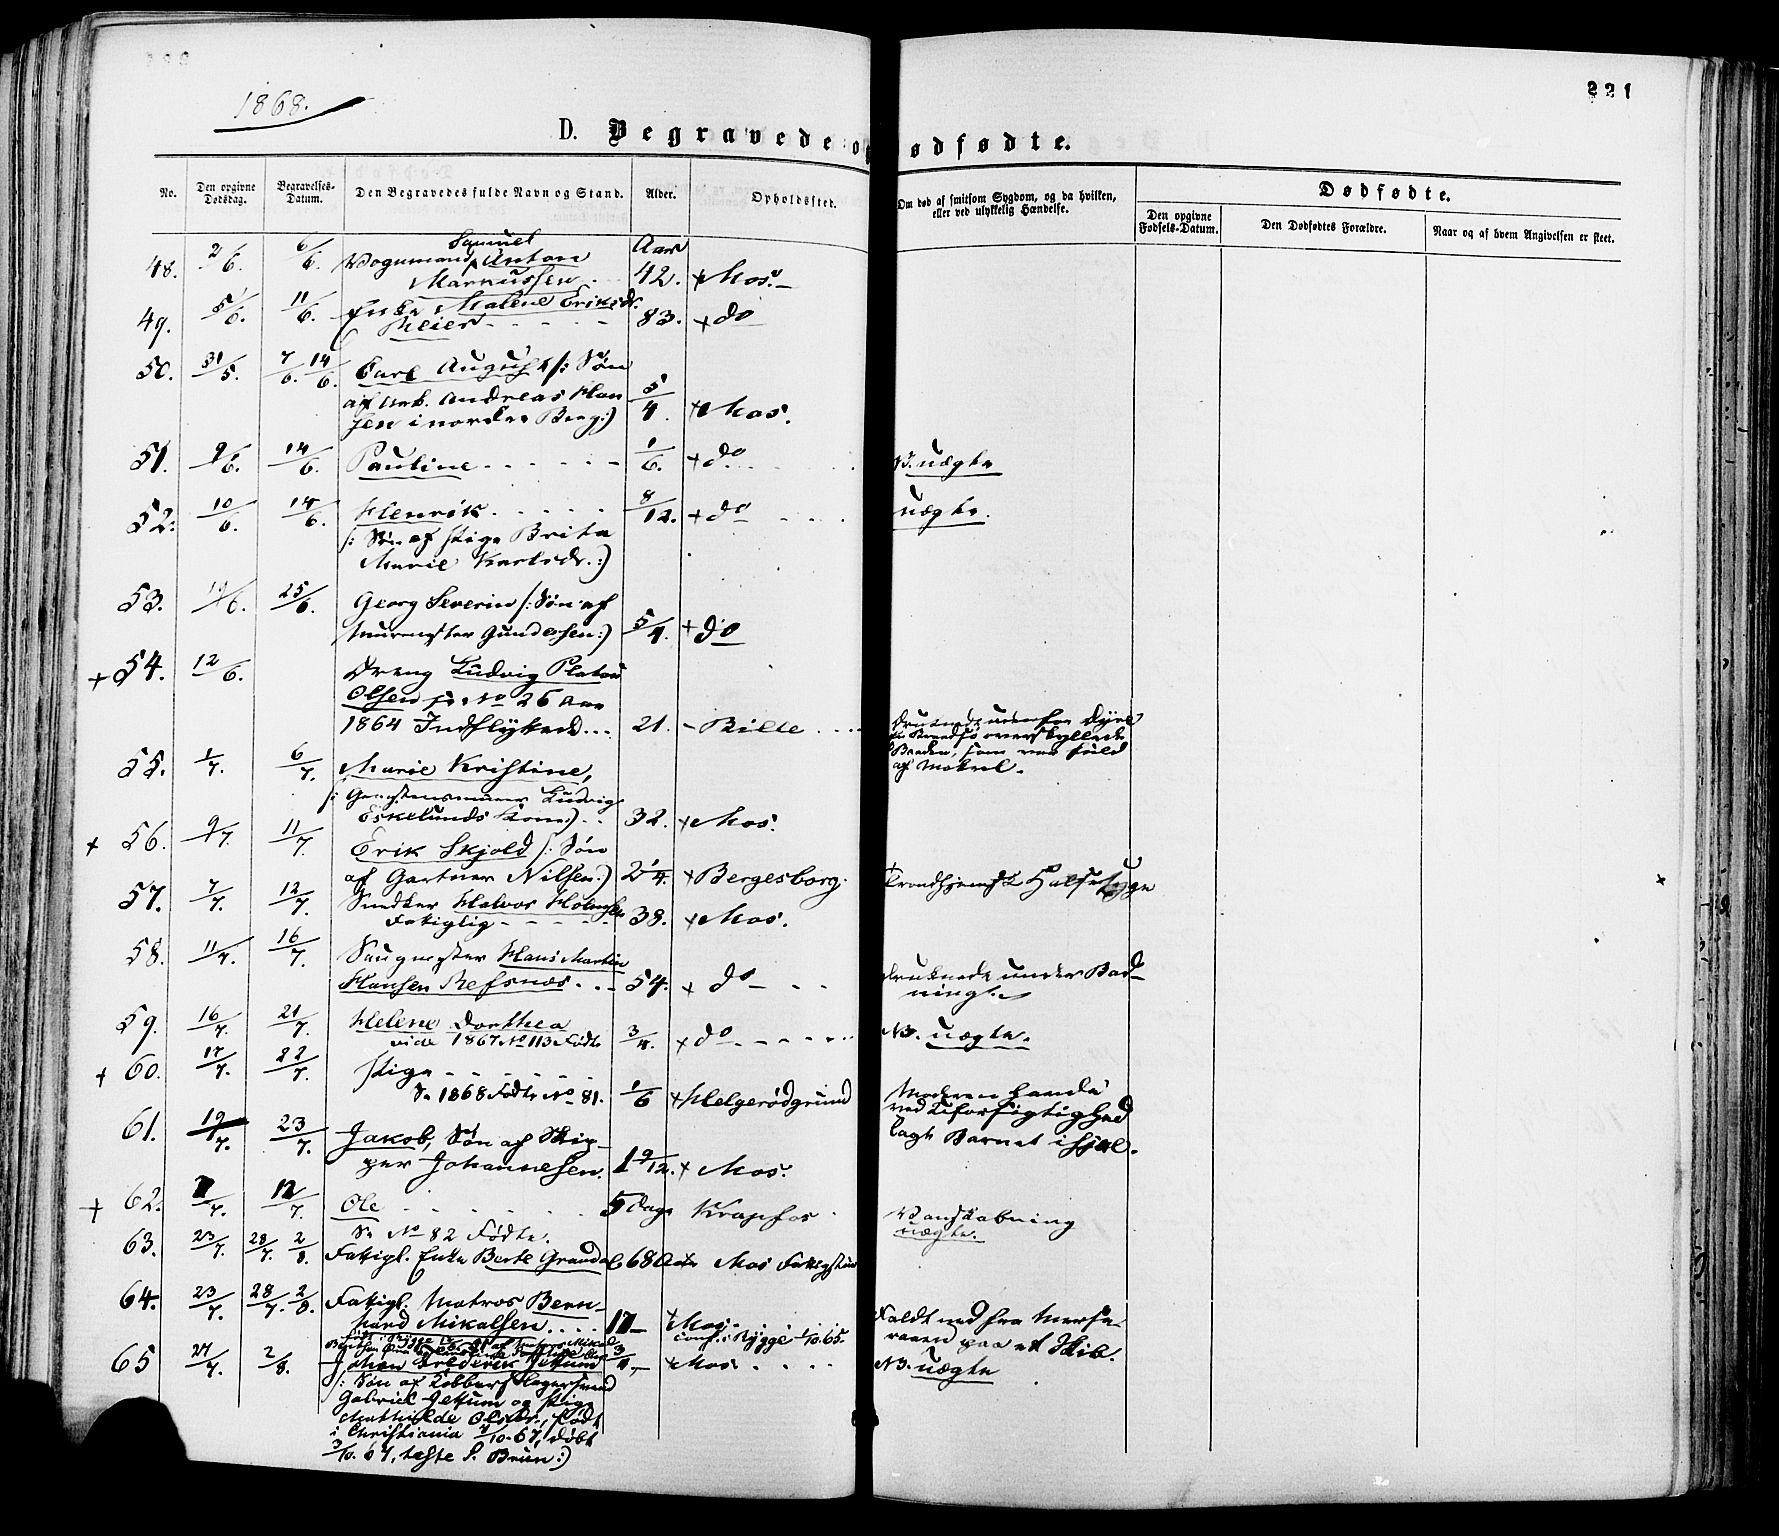 1868.
221
D. Begravede og Dødfødte.
No.
Den opgivne Dødsdag.
Begravelses-Datum.
Den Begravedes fulde Navn og Stand.
Alder.
Opholdssted.
Om død af smitsom Sygdom, og da hvilken, eller ved ulykkelig Hændelse.
Dødfødte.
Den opgivne Fødsels-Datum.
Den Dødfødtes Forældre.
Naar og af hvem Angivelsen er skeet.
48. 2/6. 6/6. Vognmand Samuel Anton
Markussen Aar 42. + Mos.
49. 5/6. 11/6. Enke Malene Eriksdr.
Meier 83. + do
50. 31/5. 7/6. 14/6. Carl August /: Søn
af Arb. Andreas Han
sen i nordre Berg :) 5/4. + Mos.
51. 9/6. 14/6. Pauline 1/6. + do. uægte
52. 10/6. 14/6. Henrik 8/12. + do uægte.
/: Søn af Pige Brita
Marie Karlsdr. :)
53. 25/6. Georg Severin /: Søn af
Murmester Gundersen :) 5/4. + do
+ 54. 12/6. Dreng Ludvig Platou
Olsen No 26 Aar
1864 Indflyttede 21. - Rille
Druknede udenfor
overskyllede
Baaden, som var fuld
af Makrel.
55. 1/7. 6/7. Marie Kristine,
Ludvig
Eskelunds Kone :) 32. + Mos.
+ 56. 9/7. 11/7. Erik Skjold /: Søn
af Gartner Nilsen :) 2 1/4. + Bergesborg. Trondhjemsk Halsesyge
57. 7/7. 12/7. Snedker Halvor
Fattiglig 38. + Mos.
58. 11/7. 16/7. Saugmester Hans Martin
Hansen Refsnæs 54. + do druknede under Bad-
ning.
59. 16/7. 21/7. Helene Dorthea
vide 1867 No 113 Fødte 3/4. + do NB. uægte.
+ 60. 17/7. 22/7. Pige
Se 1868 Fødte No 81. 1/6 + Helgerødgrund
Moderen havde
ved Uforsigtighed
lagt Barnet ihjel.
61. 19/7. 23/7. Jakob, Søn af Skip-
per Johannesen. 1 9/12. + Mos.
+ 62. 7/7. 12/7. Ole 5 Dage Krapfos Vanskabning
uægte.
Se No 82 Fødte.
63. 23/7. 28/7. 2/8. Fattigl. Enke Berte 68 Aar Mos
64. 23/7. 28/7. 2/8. Fattigl. Matros Bern-
hard Mikalsen 17 + Mos.
conf. i Rygge 1/10 65.
Faldt ned fra Merse-
raaen paa et Skib.
65 27/7. 2/8. Johan Frederik Jettum 3/4 + Mos NB. uægte
/: Søn af Kobberslagersvend
Gabriel Jettum og Pige
Mathilde Olsdr., født
i Christiania 7/10-67, døbt
3/10. 67, teste S. Brun :)